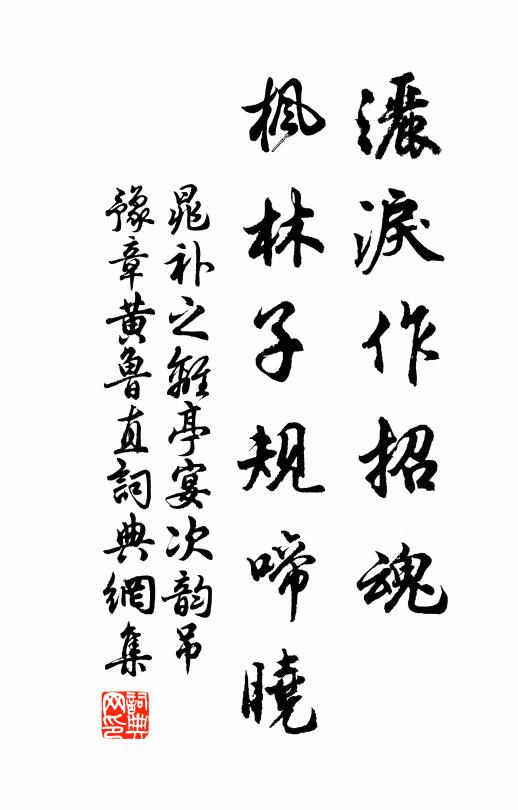 灑淚作招魂
枫林子规啼曉
晁补之離亭宴次韵吊
豫章黄魯直詞典網集
詞典网印